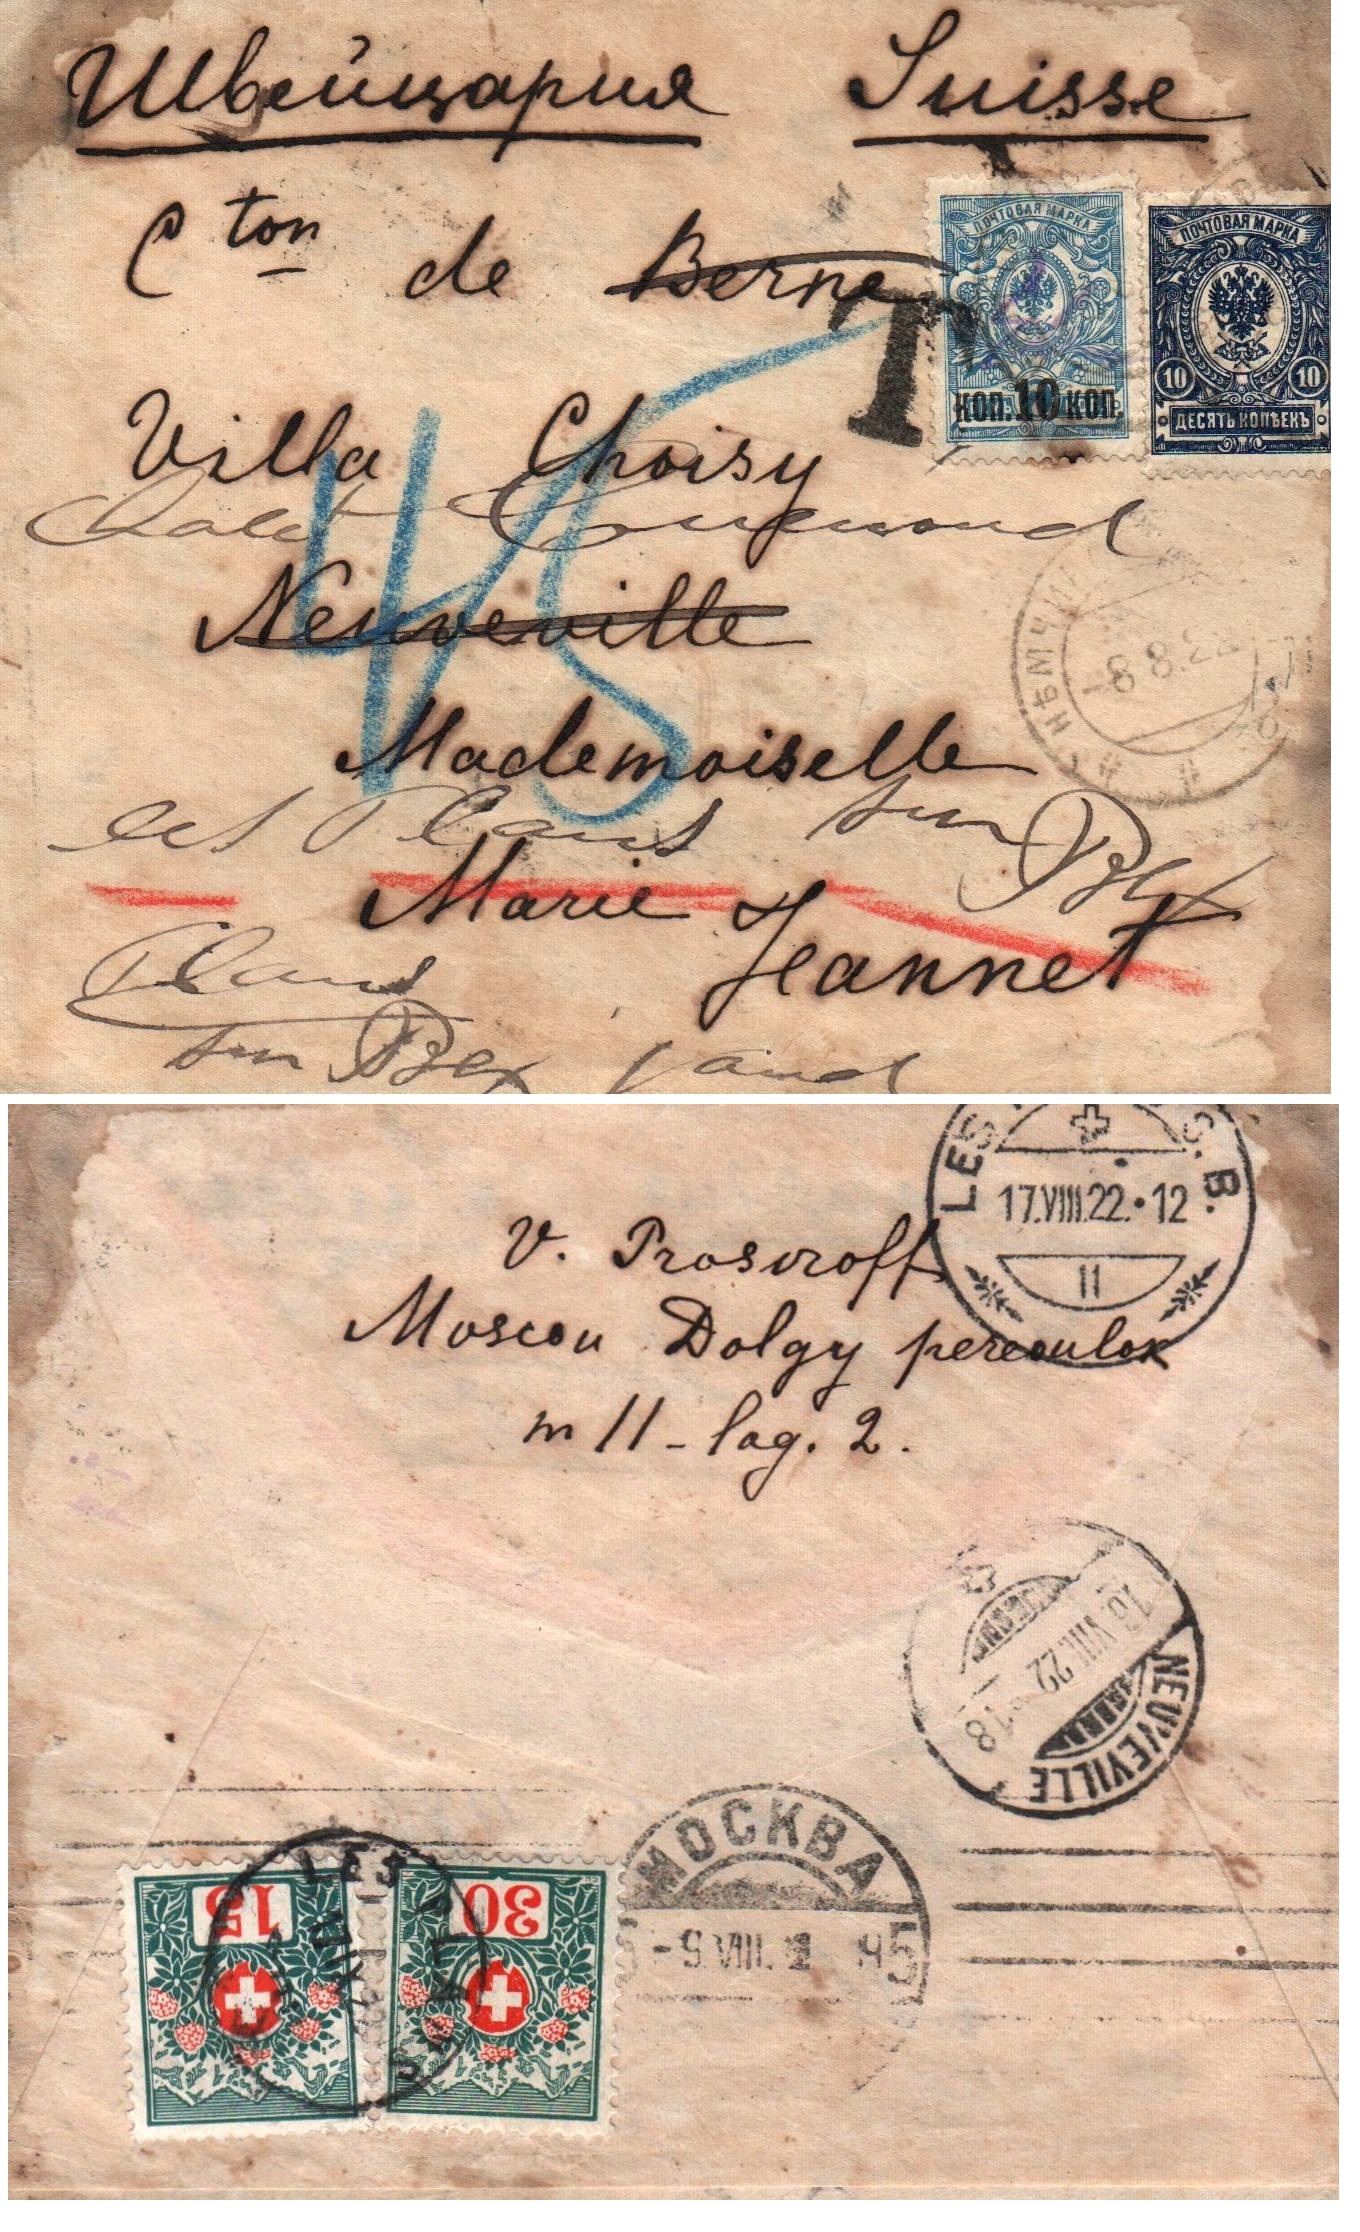 Швейцария Suisse
Cton de Berne
ПОЧТОВАЯ МАРКА
КОП. 10 КОП.
ПОЧТОВАЯ МАРКА
10 10
ДЕСЯТЬ КОПѢЕКЪ
T
45
Villa Choisy
Neuveville
-8 8.22
Mademoiselle
les Plans sur Bex
Marie Jeannet
Plans
sur Bex Vaud
LES S. B.
17.VIII.22.•12
II
V. Proscroff
Moscou Dolgy pereoulok
m 11 - log. 2.
VIII.22 18
NEUVEVILLE
МОСКВА
-9.VIII.
15
30
LES